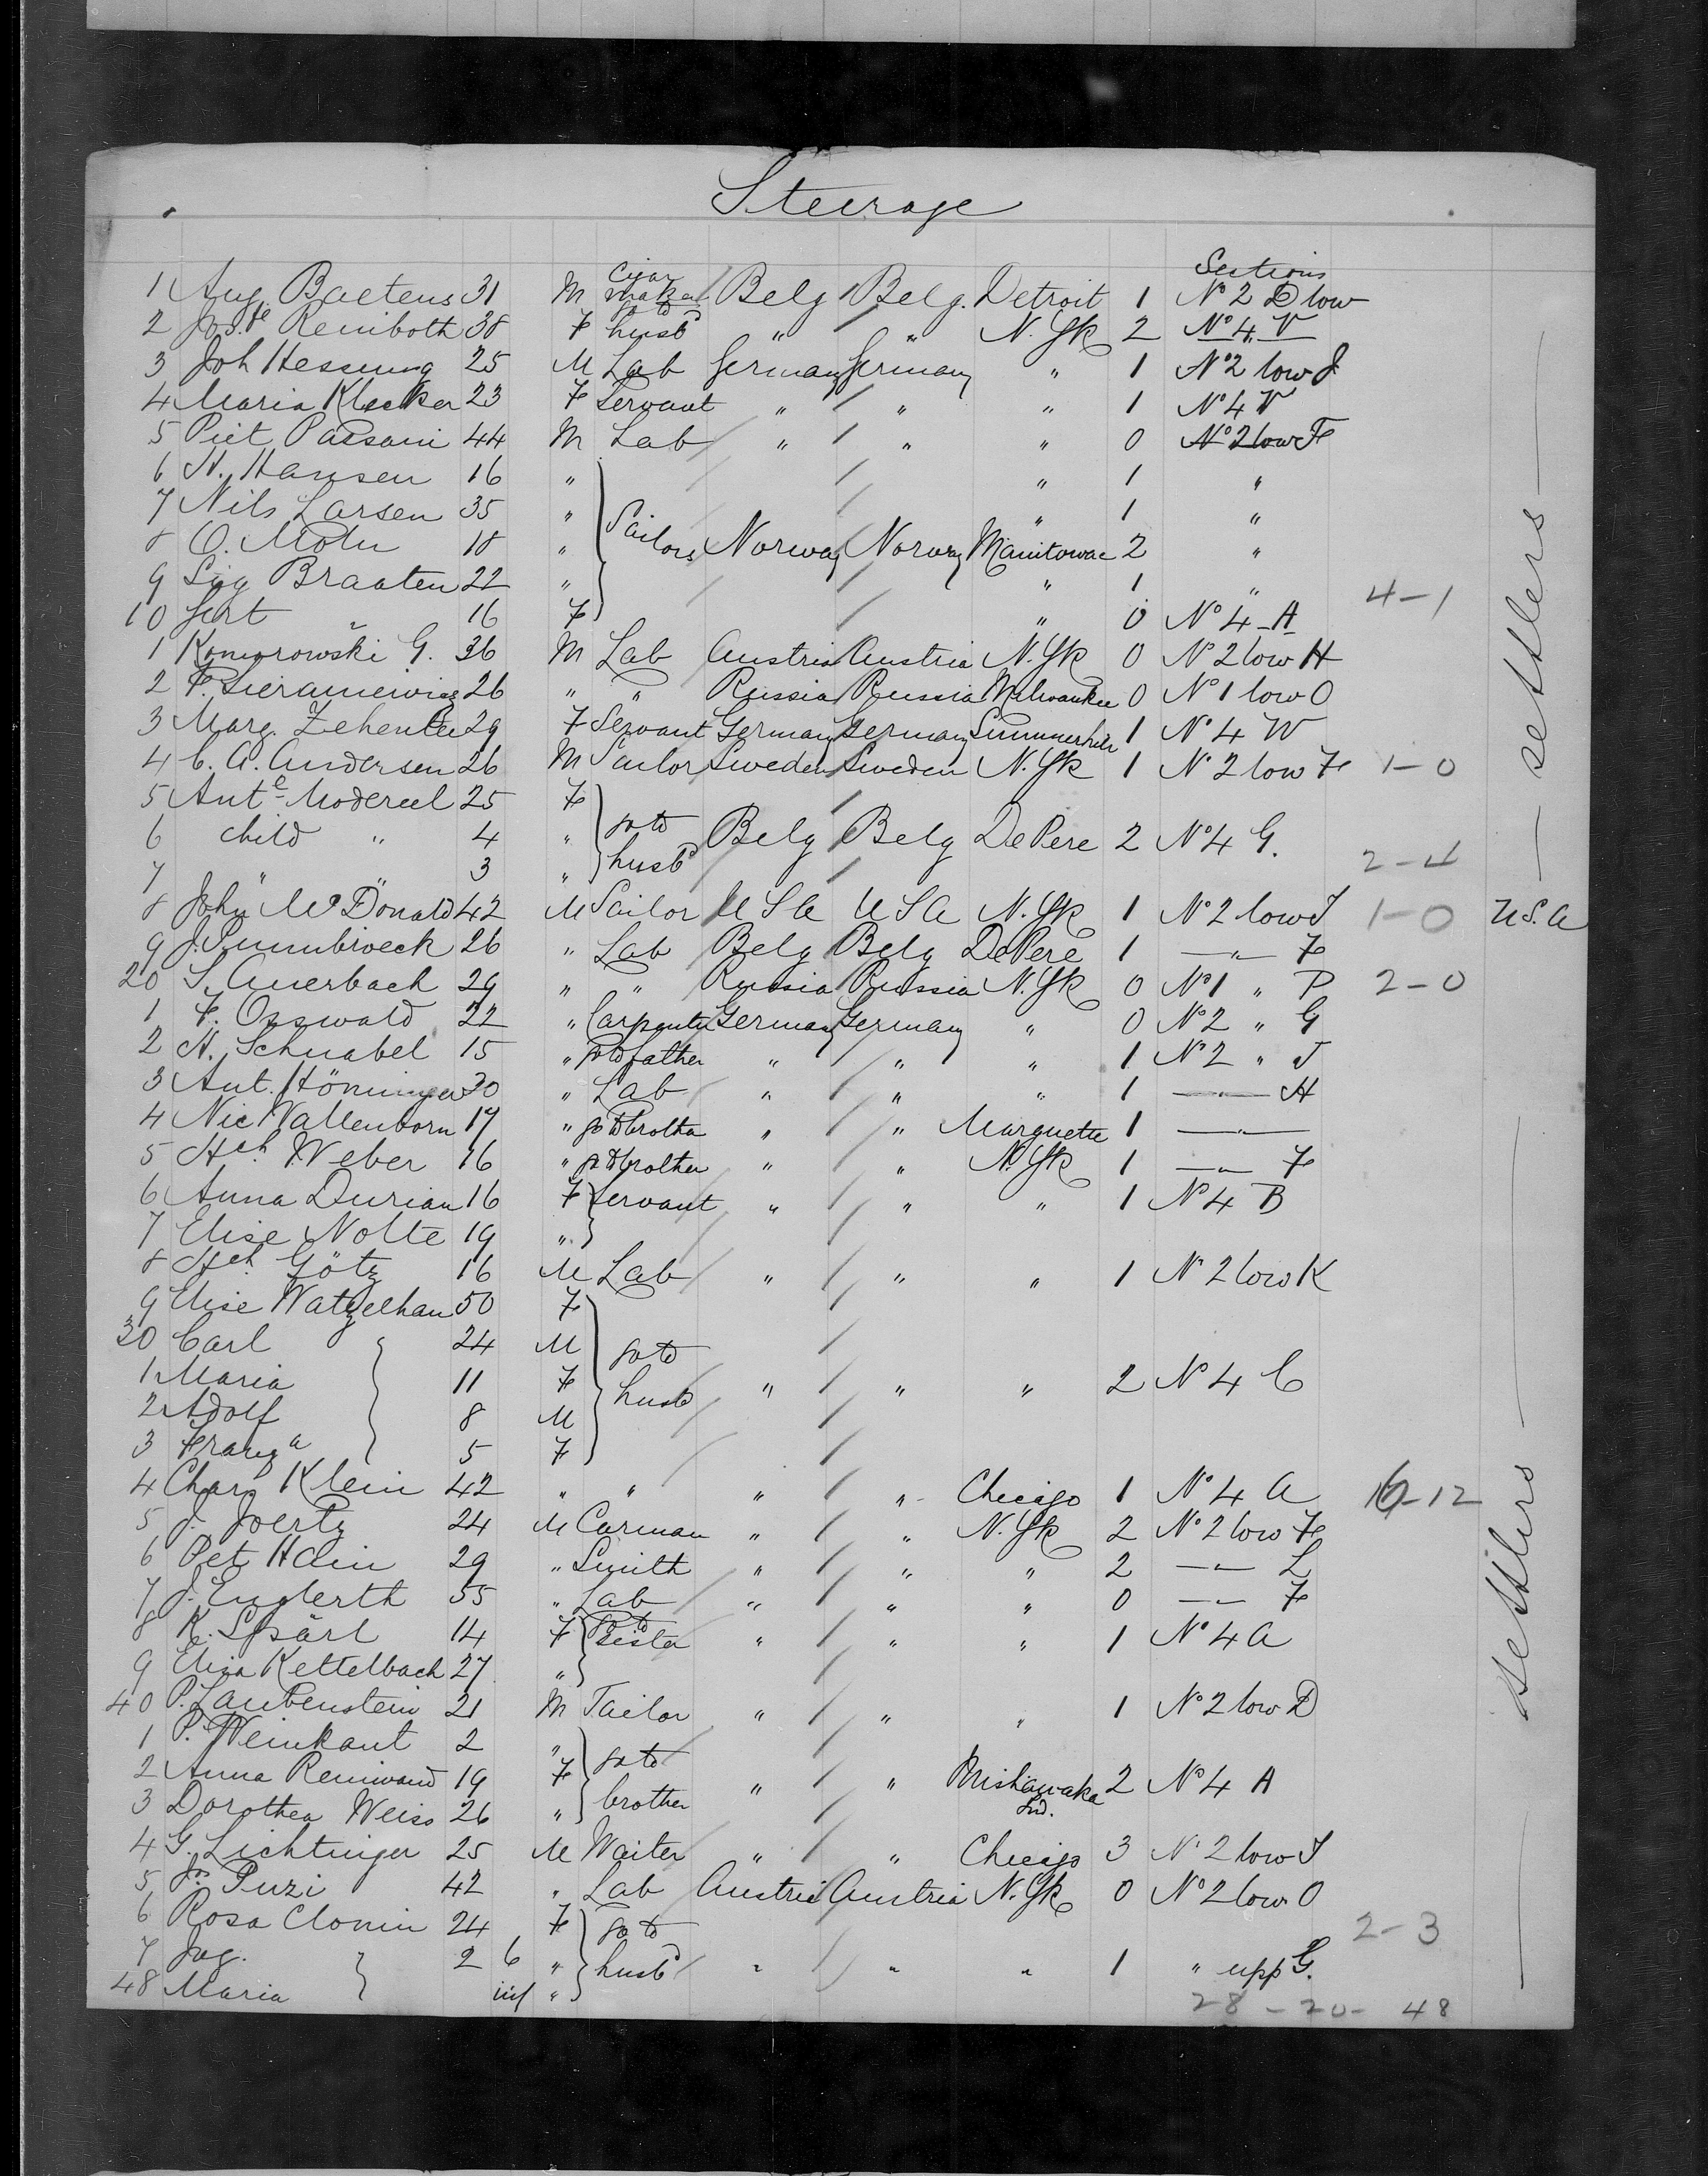 Steerage
Sections
1 Aug. Baetens 31 M Cigar maker Belg Belg. Detroit 1 No 2 D low
2 Jos.e Reniboth 38 F go to husbd " " N.Yk 2 No 4 V
3 Joh Hessung 25 M Lab Germany Germany " 1 No 2 low J
4 Maria Klecker 23 F Servant " " " 1 No 4 V
5 Piet Passani 44 M Lab " " " 0 No 2 low F
6 H. Hansen 16 " " 1 "
7 Nils Larsen 35 " " 1 "
8 O. Mohn 18 " Sailors Norway Norway Manitowac 2 "
9 Sig Braaten 22 " " 1 " 4-1
10 Gert " 16 F " 0 No 4 A
1 Komorowski G. 36 M Lab Austria Austria N.Yk 0 No 2 low H
2 26 " " Russia Russia Milwaukee 0 No 1 low O
3 Marg. Zehenter 29 F Servant Germany Germany Summerhill 1 No 4 W
4 C. A. Andersen 26 M Sailor Sweden Sweden N.Yk 1 No 2 low F 1-0
5 Ante Modereel 25 F
6 child " 4 " go to husbd Belg Belg DePere 2 No 4 G.
7 " " 3 " 2-4
8 John McDonald 42 M Sailor USA USA N.Yk 1 No 2 low J 1-0 U.S.A
9 26 " Lab Belg Belg DePere 1 —"— F
20 S. Auerbach 29 " " Russia Russia N.Yk 0 No 1 " P 2-0
1 F. Osswald 22 " Carpenter Germany Germany " 0 No 2 " G
2 H. Schnabel 15 " go to father " " " 1 No 2 " J
3 Ant. Höninger 30 " Lab " " " 1 —"— H
4 Nic Wallenborn 17 " go to brother " " Marquette 1 —"—
5 Hch. Weber 16 " go to brother " " N.Yk 1 —"— F
6 Anna Durian 16 F Servant " " " 1 No 4 B
7 Elise Nolte 19 "
8 Hch. Götz 16 M Lab " " " 1 No 2 low K
9 Elise Watzelhan 50 F
30 Carl 24 M go to
1 Maria 11 F husb " " " 2 No 4 C
2 Adolf 8 M
3 Franza 5 F
4 Chars Klein 42 " " " " Chicago 1 No 4 A 16-12
5 J. Joerty 24 M Carman " " N.Yk 2 No 2 low F
6 Pet Hain 29 " Smith " " " 2 —"— L
7 J. Englerth 55 " Lab " " " 0 —"— F
8 K. Spärl 14 F go to Sister " " " 1 No 4 A
9 Elisa Kettelbach 27 "
40 P. Laubenstein 21 M Tailor " " " 1 No 2 low D
1 P. Weinkaut 2 "
2 Anna Reniwand 19 F go to brother " " Mishawaka Ind. 2 No 4 A
3 Dorothea Weiss 26 "
4 G. Lichtinger 25 M Waiter " " Chicago 3 No 2 low J
5 Js. Puzi 42 " Lab Austria Austria N.Yk 0 No 2 low O
6 Rosa Clonin 24 F go to 2-3
7 Jog. 2 6 " husbd " " " 1 " upp G.
48 Maria inf "
28-20- 48
— settlers —
— settlers —